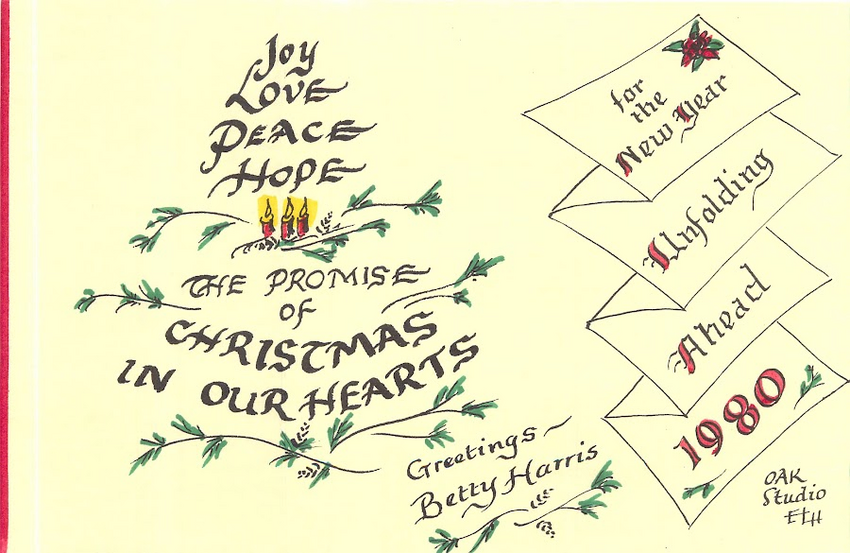 Joy
Love
Peace
Hope
The Promise
of
Christmas
in our Hearts
Greetings~
Betty Harris
for
the
New Year
Unfolding
Ahead
1980
OAK
Studio
EtH